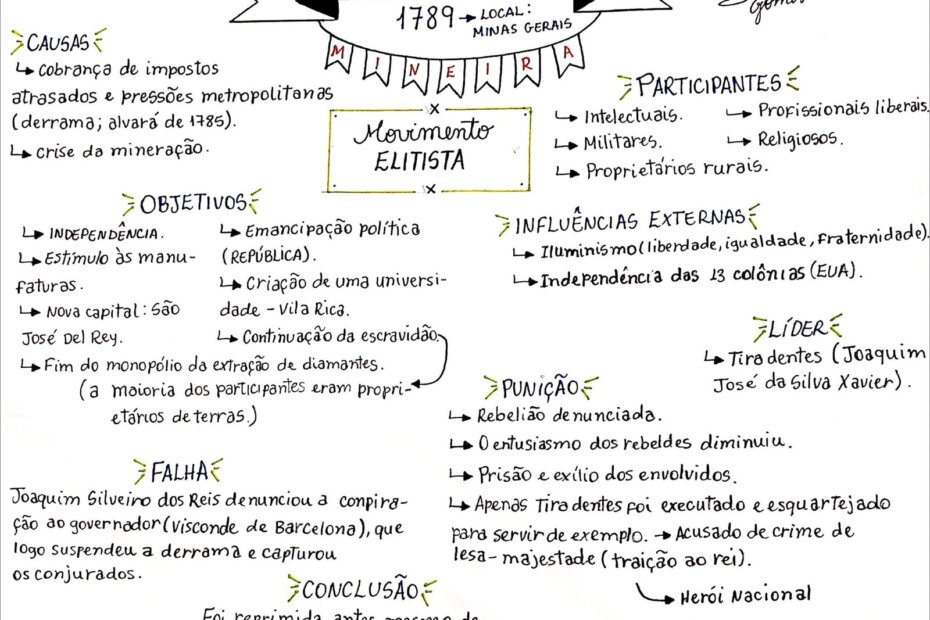 1789 → LOCAL:
MINAS GERAIS
MINEIRA
Movimento
ELITISTA
CAUSAS
↳ cobrança de impostos
atrasados e pressões metropolitanas
(derrama; alvará de 1785).
↳ crise da mineração.
PARTICIPANTES
↳ Intelectuais.
↳ Militares.
↳ Proprietários rurais.
↳ Profissionais liberais.
↳ Religiosos.
OBJETIVOS
↳ INDEPENDÊNCIA.
↳ Estímulo às manu-
faturas.
↳ Nova capital: São
José Del Rey.
↳ Emancipação política
(REPÚBLICA).
↳ Criação de uma universi-
dade - Vila Rica.
↳ Continuação da escravidão
↳ Fim do monopólio da extração de diamantes.
(a maioria dos participantes eram propri-
etários de terras.)
INFLUÊNCIAS EXTERNAS
↳ Iluminismo (liberdade, igualdade, fraternidade).
↳ Independência das 13 colônias (EUA).
LÍDER
↳ Tiradentes (Joaquim
José da Silva Xavier).
PUNIÇÃO
↳ Rebelião denunciada.
↳ O entusiasmo dos rebeldes diminuiu.
↳ Prisão e exílio dos envolvidos.
↳ Apenas Tiradentes foi executado e esquartejado
para servir de exemplo. → Acusado de crime de
lesa-majestade (traição ao rei).
↳ Herói Nacional
FALHA
Joaquim Silveiro dos Reis denunciou a conpira-
ção ao governador (Visconde de Barcelona), que
logo suspendeu a derrama e capturou
os conjurados.
CONCLUSÃO
Foi reprimida antes mesmo de